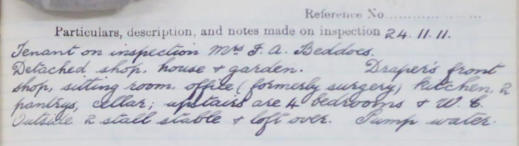 Reference No..............
Particulars, description, and notes made on inspection 24.11.11.
Tenant on inspection Mrs F. A. Beddoes.
Detached shop, house & garden. Draper's front
shop, sitting room, office (formerly surgery), kitchen, 2
pantrys, cellar; upstairs are 4 bedrooms & W.C.
Outside 2 stall stable & loft over. Pump water.